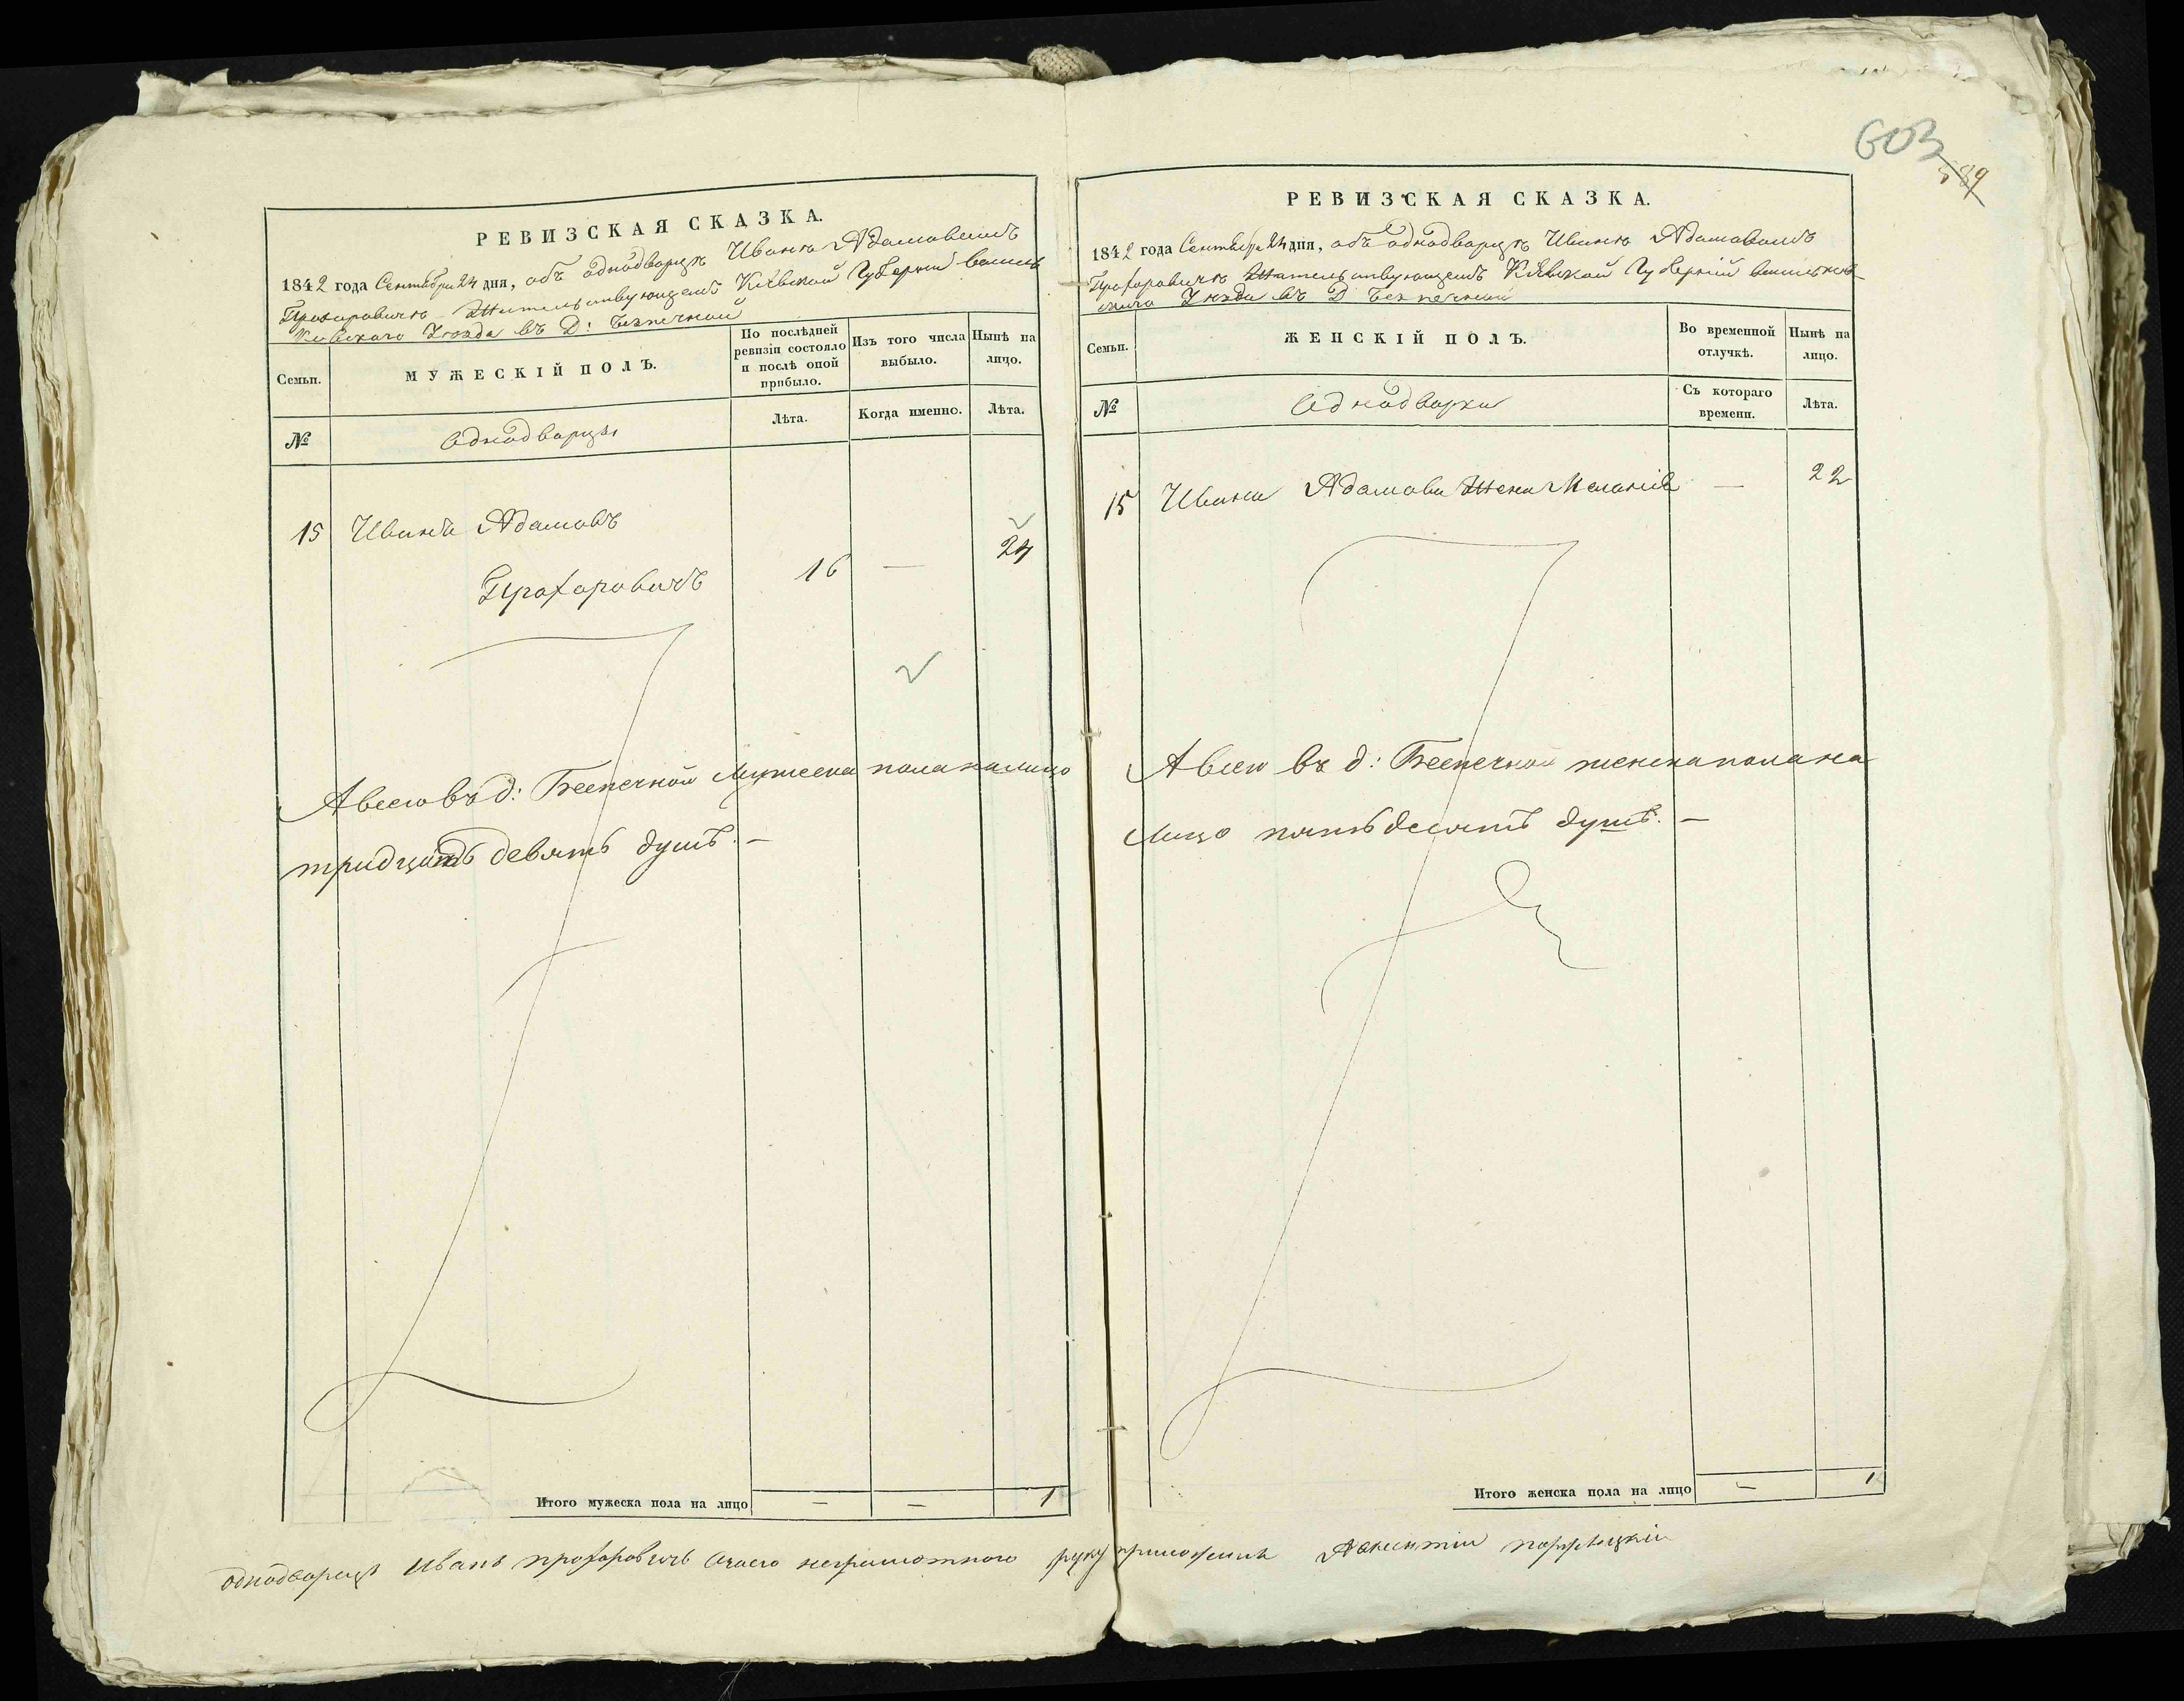 603
589
РЕВИЗСКАЯ СКАЗКА.
1842 года Сентября 24 дня, объ однодворцѣ Иванѣ Адамовымъ
Прохоровичѣ Жительствующемъ Кіевской Губерніи Василь
ковскаго Уѣзда въ Д: Безпечной
Семьи.
МУЖЕСКІЙ ПОЛЪ.
По послѣдней ревизіи состояло и послѣ оной прибыло.
Изъ того числа выбыло.
Нынѣ на лицо.
№
Однодворцы
Лѣта.
Когда именно.
Лѣта.
15 Иванъ Адамовъ
Прохоровичъ 16 — 24
А всего въ д: Беспечной Мужеска пола налицо
тридцать девять душъ. —
Итого мужеска пола на лицо — — 1
РЕВИЗСКАЯ СКАЗКА.
1842 года Сентября 24 дня, объ однодворцѣ Иванѣ Адамовомъ
Прохоровичѣ Жительствующемъ Кіевской Губерніи Васильков-
скаго Уѣзда въ Д Безпечной
Семьи.
ЖЕНСКІЙ ПОЛЪ.
Во временной отлучкѣ.
Нынѣ на лицо.
№
Однодворки
Съ котораго времени.
Лѣта.
15 Ивана Адамова Жена Меланія — 22
А всего въ д: Беспечной женска пола на
лицо пятьдесятъ душъ. —
Итого женска пола на лицо — 1
однодворецъ Иванъ прохоровичъ неграмотного руку приложилъ